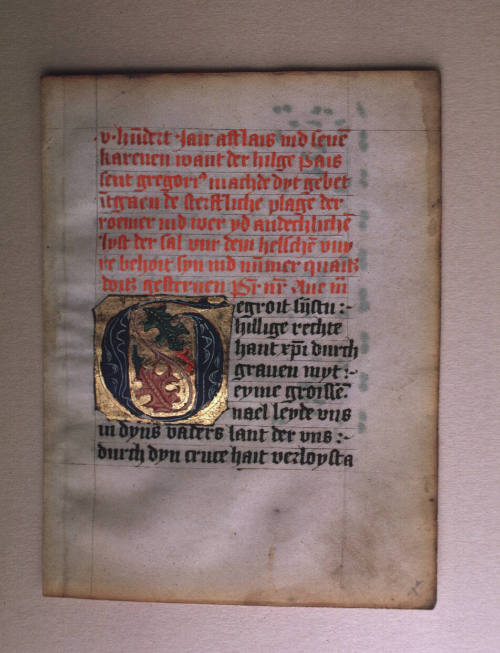 v · hūdert · Jair afflais vnd seuē
karenen want der hilge Pais
sent gregori⁹ machde dyt gebet
itgaen de sterffliche plage der
roemer vnd wer yd andechlichē
lyst der sal vur dem helschē vuy
re behoit syn vnd nūmer quaitz
doitz gesteruen Pr̄ nr̄ Aue m̄
Gegroit sijstu :~
hillige rechte
hant xp̄i durch
grauen myt :~
eyme groissē
nael leyde vns
in dyns vaters lant der vns :~
durch dyn cruce hait verloysta